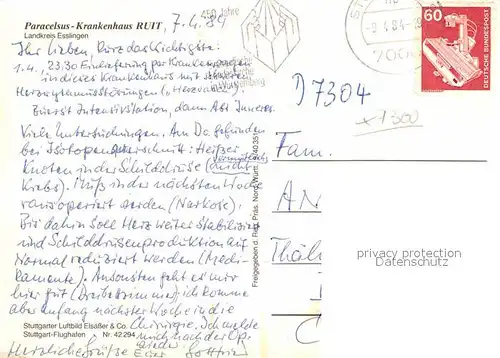 Paracelsus-Krankenhaus RUIT
Landkreis Esslingen
7.4.84
Ihr Lieben, Kurz das Wichtigste:
1.4., 23.30 Einlieferung per Krankenwagen
in dieses Krankenhaus mit schweren
Herzrhythmusstörungen ("Herzrasen").
Zuerst Intensivstation, dann Abt Inneres.
Viele Untersuchungen. Am Do gefunden
bei Isotopenquerschnitt: Heißer
Knoten in der Schilddrüse (vermutlich nicht
Krebs). Muß in der nächsten Woche
rausoperiert werden (Narkose).
Bis dahin soll Herz weiter stabilisiert
und Schilddrüsenproduktion auf
Normal reduziert werden (Medi-
kamente). Ansonsten geht es mir
hier gut (Dreibettzimmer), ich komme
aber anfang nächster Woche in die
Chirurgie. Ich melde
mich nach der Op.
wieder.
Herzliche Grüße Euer
Stuttgarter Luftbild Elsäßer & Co.
Stuttgart-Flughafen Nr. 42 294
Freigegeben d. Reg. Präs. Nord-Württ.
450 Jahre
-9.4.84
7000
60
DEUTSCHE BUNDESPOST
D 7304
x 1300
Fam.
privacy protection
Datenschutz